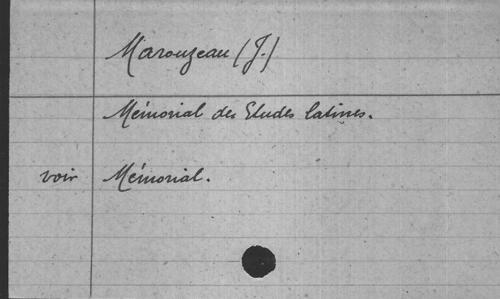 Marouzeau (J.)
Mémorial des Etudes latines.
voir Mémorial.